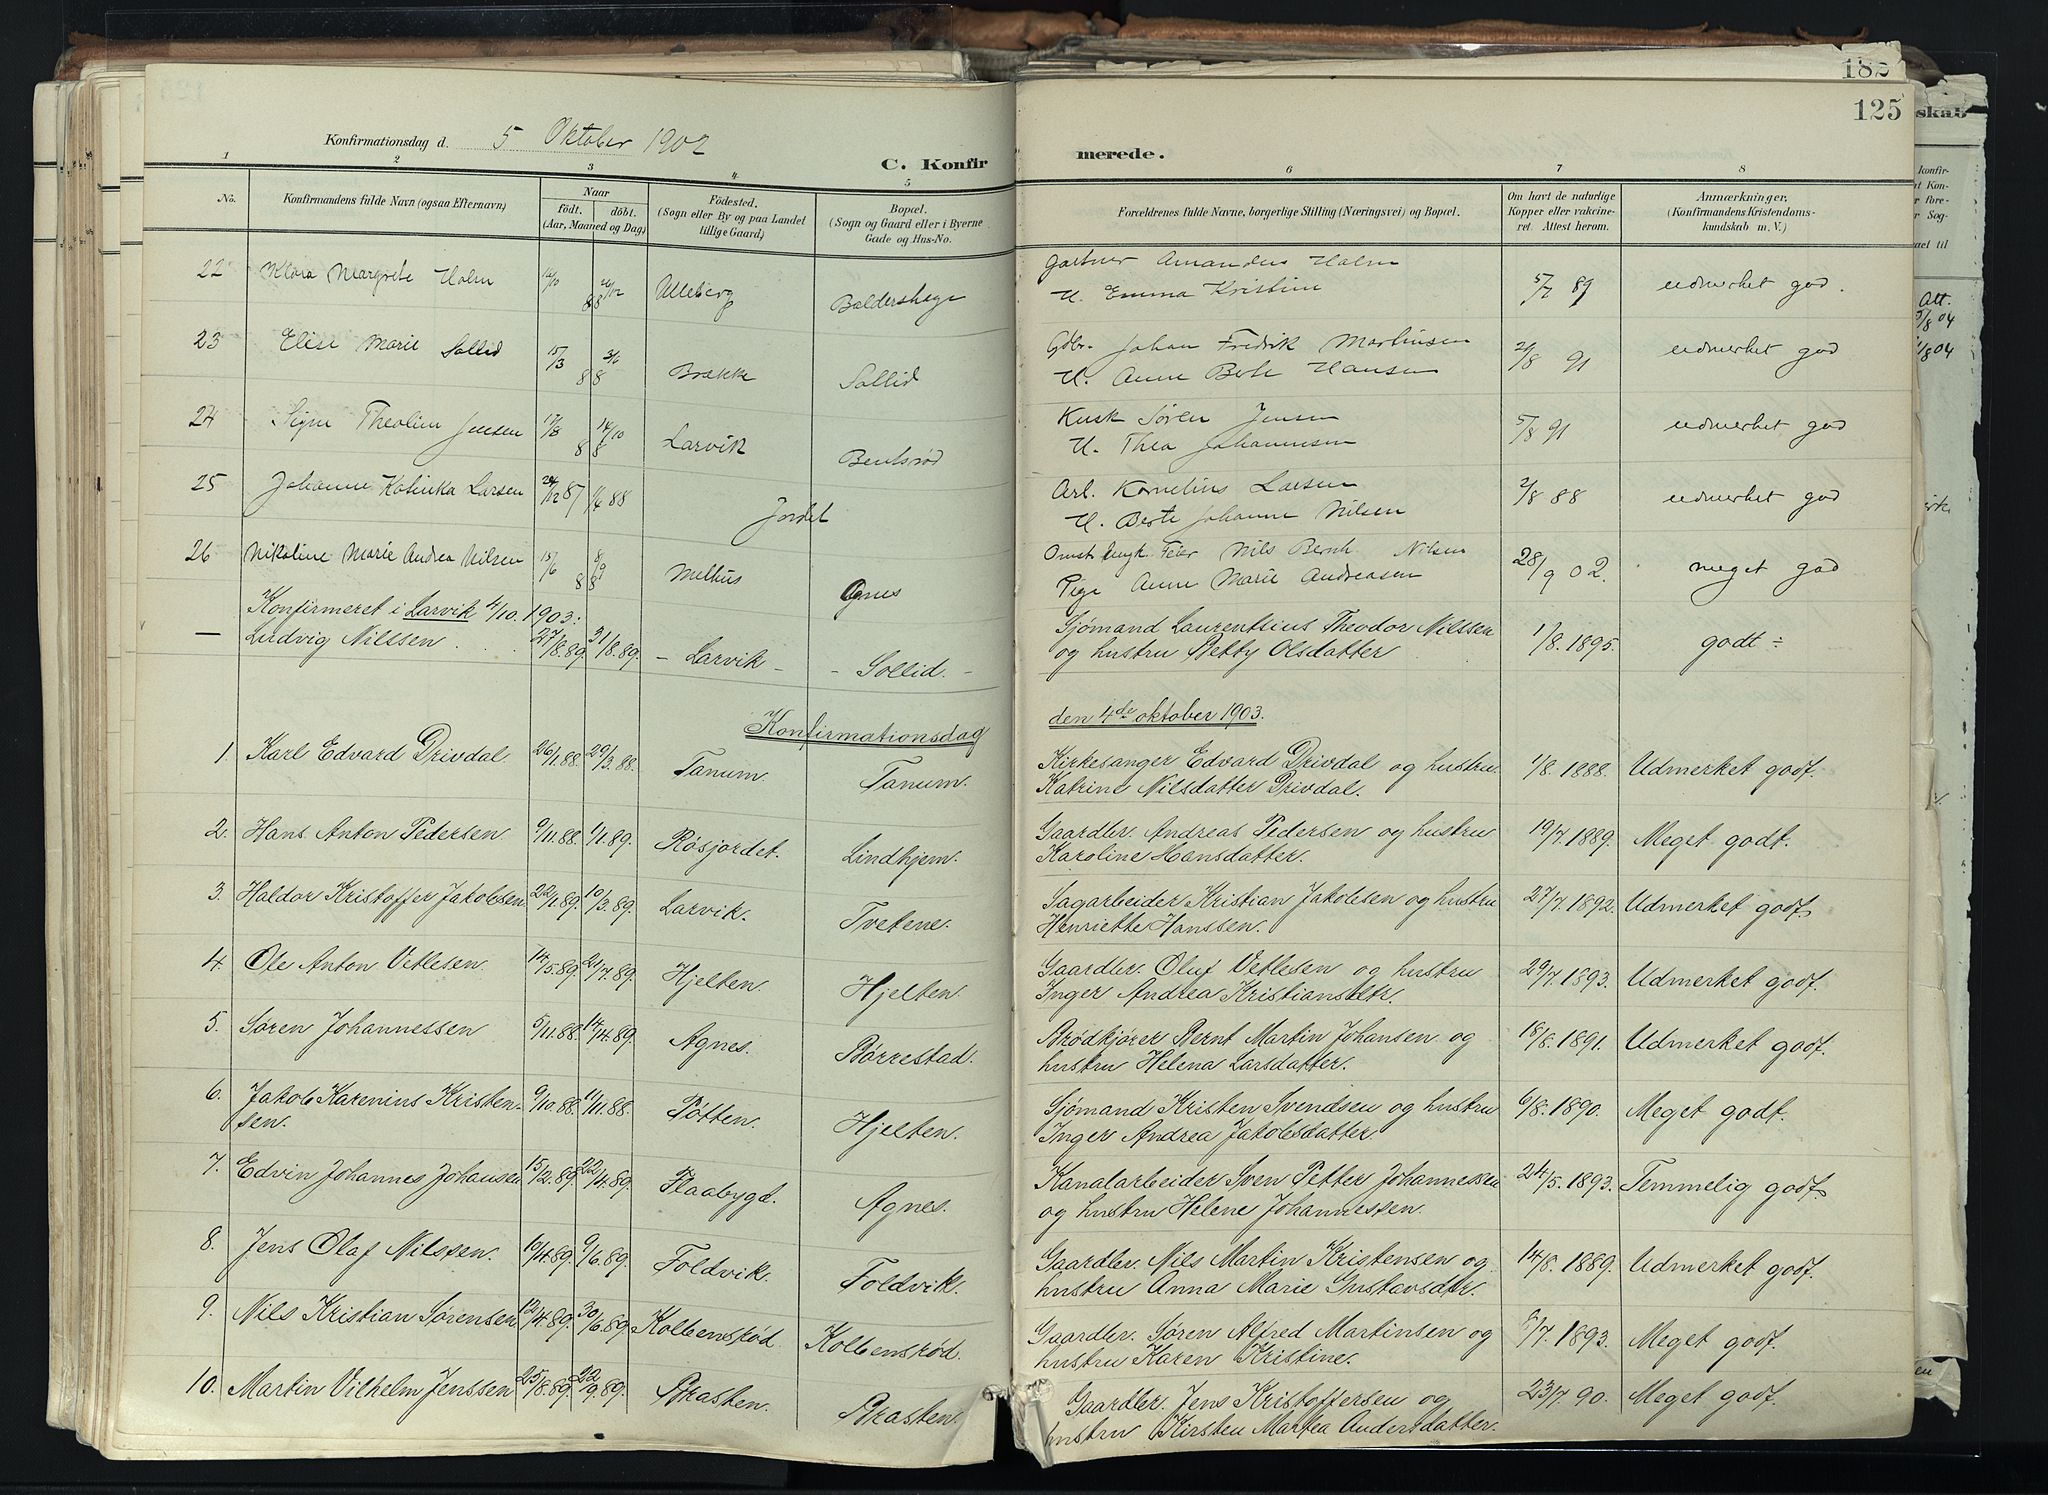 182
125
skab
Konfirmationsdag d. 5 Oktober 1902
C. Konfir
merede.
1 2 3 4 5 6 7 8
No.
Konfirmandens fulde Navn (ogsaa Efternavn)
Naar
födt. döbt.
(Aar, Maaned og Dag)
Födested.
(Sogn eller By og paa Landet
tillige Gaard)
Bopæl.
(Sogn og Gaard eller i Byerne
Gade og Hus-No.
Forældrenes fulde Navne, borgerlige Stilling (Næringsvei) og Bopæl.
Om havt de naturlige
Kopper eller vakcine-
ret. Attest herom.
Anmærkninger.
(Konfirmandens Kristendoms-
kundskab m. V.)
22 Klara Margrete Holm 88 Ulleberg Baldershage
Gartner Amandus Holm
H. Emma Kristine
5/7 89 udmerket god.
23 Elise Marie Sollid 15/3 88 Brække Sollid
Gdbr. Johan Fredrik Martinsen
H. Anne Berte Hansen
91 udmerket god
24 Signe Theoline Jensen 17/8 14/10 88 Larvik Bentsrød
Kusk Søren Jensen
H. Thea Johannesen
5/8 91 udmerket god
25 Johanne Katinka Larsen 24/12 87 1/6 88 Jordet
Arb. Kornelius Larsen
H. Berte Johanne Nilsen
2/8 88 udmerket god
26 Nikoline Marie Andrea Nilsen 15/6 8/9 88 Melhus Agnes
Feier Nils Bernh. Nilsen
Pige Anne Marie Andreasen
28/9 02. meget god
Konfirmeret i Larvik 4/10. 1903:
— Ludvig Nilssen 27/8.89. 31/8.89. - Larvik - - Sollid. -
Sjømand Laurentsius Theodor Nilssen
og hustru Betty Olsdatter
1/8. 1895. godt ÷
Konfirmationsdag
den 4de oktober 1903.
1. Karl Edvard Drivdal 26/1.88. 29/3.88. Tanum. Tanum.
Kirkesanger Edvard Drivdal og hustru
Katrine Nilsdatter Drivdal.
1/8. 1888. Udmerket godt.
2. Hans Anton Pedersen 9/11.88. 1/1.89. Røsjordet. Lindhjem.
Gaardbr. Andreas Pedersen og hustru
Karoline Hansdatter.
19/7.1889. Meget godt.
3. Haldor Kristoffer Jakobsen 22/1.89. 10/3.89. Larvik. Tvetene.
Sagarbeider Kristian Jakobsen og hustru
Henriette Hanssen.
27/7.1892. Udmerket godt
4. Ole Anton Vetlesen. 14/5.89. 21/7.89. Hjelten. Hjelten.
Gaardbr. Oluf Vetlesen og hustru
Inger Andrea Kristiansdtr.
29/7.1893. Udmerket godt.
5. Søren Johannessen 5/11.88. 14/4.89. Agnes. Børrestad.
Brødkjører Bernt Martin Johansen og
hustru Helena Larsdatter.
18/8.1891. Udmerket godt.
6. Jakob Karenius Kristen-
sen. 9/10.88. 11/11.88. Pøtten. Hjelten.
Sjømand Kristen Svendsen og hustru
Inger Andrea Jakobsdatter
6/8.1890. Meget godt.
7. Edvin Johannes Johansen 15/2.89. 22/4.89. Flaabygd. Agnes.
Kanalarbeider Sven Petter Johannessen
og hustru Helene Johannessen.
24/5.1893. Temmelig godt
8. Jens Olaf Nilssen. 10/4.89. 9/6.89. Foldvik. Foldvik.
Gaardbr. Nils Martin Kristensen og
hustru Anna Marie Gustavsdtr.
14/8.1889. Udmerket godt.
9. Nils Kristian Sørensen 12/4.89. 30/6.89. Kolbensrød. Kolbensrød.
Gaardbr. Søren Alfred Martinsen og
hustru Karen Kristine.
1893. Meget godt.
10. Martin Vilhelm Jenssen 25/8.89. 22/9.89. Brasten. Brasten.
Gaardbr. Jens Kristoffersen og
hustru Kirsten Martea Andersdatter.
23/7. 90. Meget godt.
Att.